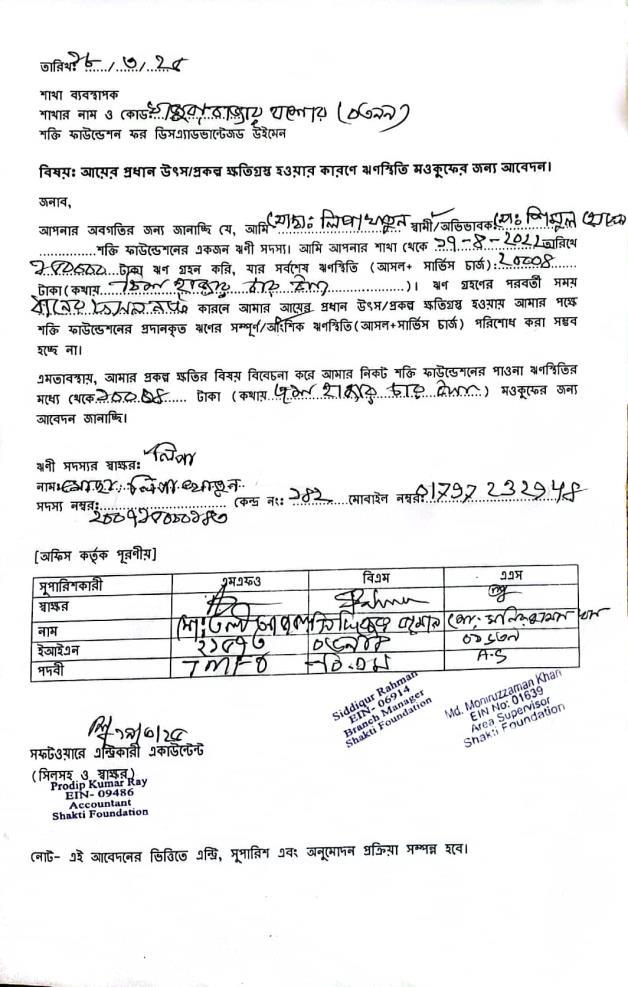 তারিখ: ১৮/৩/২৫
শাখা ব্যবস্থাপক
শাখার নাম ও কোড:
শক্তি ফাউন্ডেশন ফর ডিসএ্যাডভান্টেজড উইমেন
বিষয়: আয়ের প্রধান উৎস/প্রকল্প ক্ষতিগ্রস্ত হওয়ার কারণে ঋণস্থিতি মওকুফের জন্য আবেদন।
জনাব,
আপনার অবগতির জন্য জানাচ্ছি যে, আমি মোছা: লিপা খাতুন স্বামী/অভিভাবক
শক্তি ফাউন্ডেশনের একজন ঋণী সদস্য। আমি আপনার শাখা থেকে তারিখে
টাকা ঋণ গ্রহন করি, যার সর্বশেষ ঋণস্থিতি (আসল+ সার্ভিস চার্জ):
টাকা(কথায় দশ হাজার চার টাকা)। ঋণ গ্রহণের পরবর্তী সময়
কারনে আমার আয়ের প্রধান উৎস/প্রকল্প ক্ষতিগ্রস্ত হওয়ায় আমার পক্ষে
শক্তি ফাউন্ডেশনের প্রদানকৃত ঋণের সম্পূর্ণ/আংশিক ঋণস্থিতি(আসল+সার্ভিস চার্জ) পরিশোধ করা সম্ভব
হচ্ছে না।
এমতাবস্থায়, আমার প্রকল্প ক্ষতির বিষয় বিবেচনা করে আমার নিকট শক্তি ফাউন্ডেশনের পাওনা ঋণস্থিতির
মধ্যে থেকে টাকা (কথায় দশ হাজার চার টাকা) মওকুফের জন্য
আবেদন জানাচ্ছি।
ঋণী সদস্যর স্বাক্ষর: লিপা
নাম: মোছা: লিপা খাতুন
সদস্য নম্বর: কেন্দ্র নং: ১৪২ মোবাইল নম্বর: 01797232948
[অফিস কর্তৃক পূরণীয়]
সুপারিশকারী এমএফও বিএম এএস
স্বাক্ষর
নাম
ইআইএন
পদবী TMFO বি.এম A.S
Siddiqur Rahman
EIN- 06914
Branch Manager
Shakti Foundation
Md. Moniruzzaman Khan
EIN No: 01639
Area Supervisor
Shakti Foundation
সফটওয়ারে এন্ট্রিকারী একাউন্টেন্ট
(সিলসহ ও স্বাক্ষর)
Prodip Kumar Ray
EIN- 09486
Accountant
Shakti Foundation
নোট- এই আবেদনের ভিত্তিতে এন্ট্রি, সুপারিশ এবং অনুমোদন প্রক্রিয়া সম্পন্ন হবে।